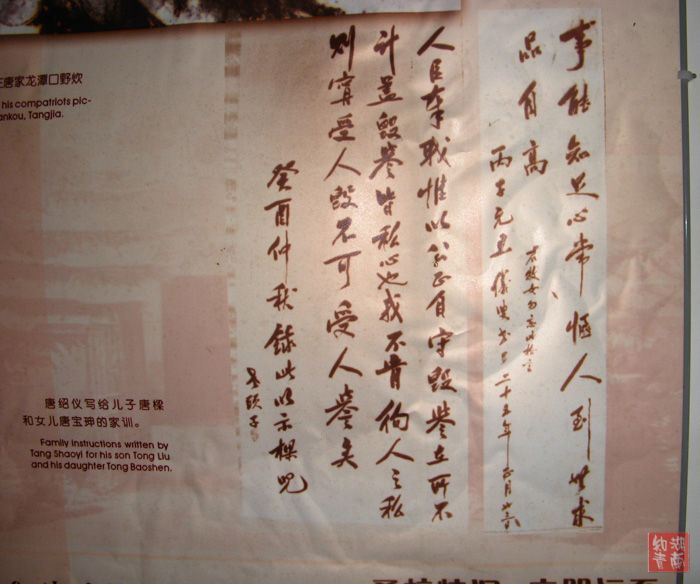 唐家龙潭口野炊
his compatriots pic-
ankou, Tangjia.
事能知足心常惬人到無求
品自高
丙子元旦
人臣奉职惟以公正自守毁誉在所不
计盖毁誉皆私心也我不肯徇人之私
则宁受人毁不可受人誉矣
癸酉仲秋録此以示樑兒
唐绍仪写给儿子唐樑
和女儿唐宝珅的家训。
Family instructions written by
Tang Shaoyi for his son Tong Liu
and his daughter Tong Baoshen.
湖南知青